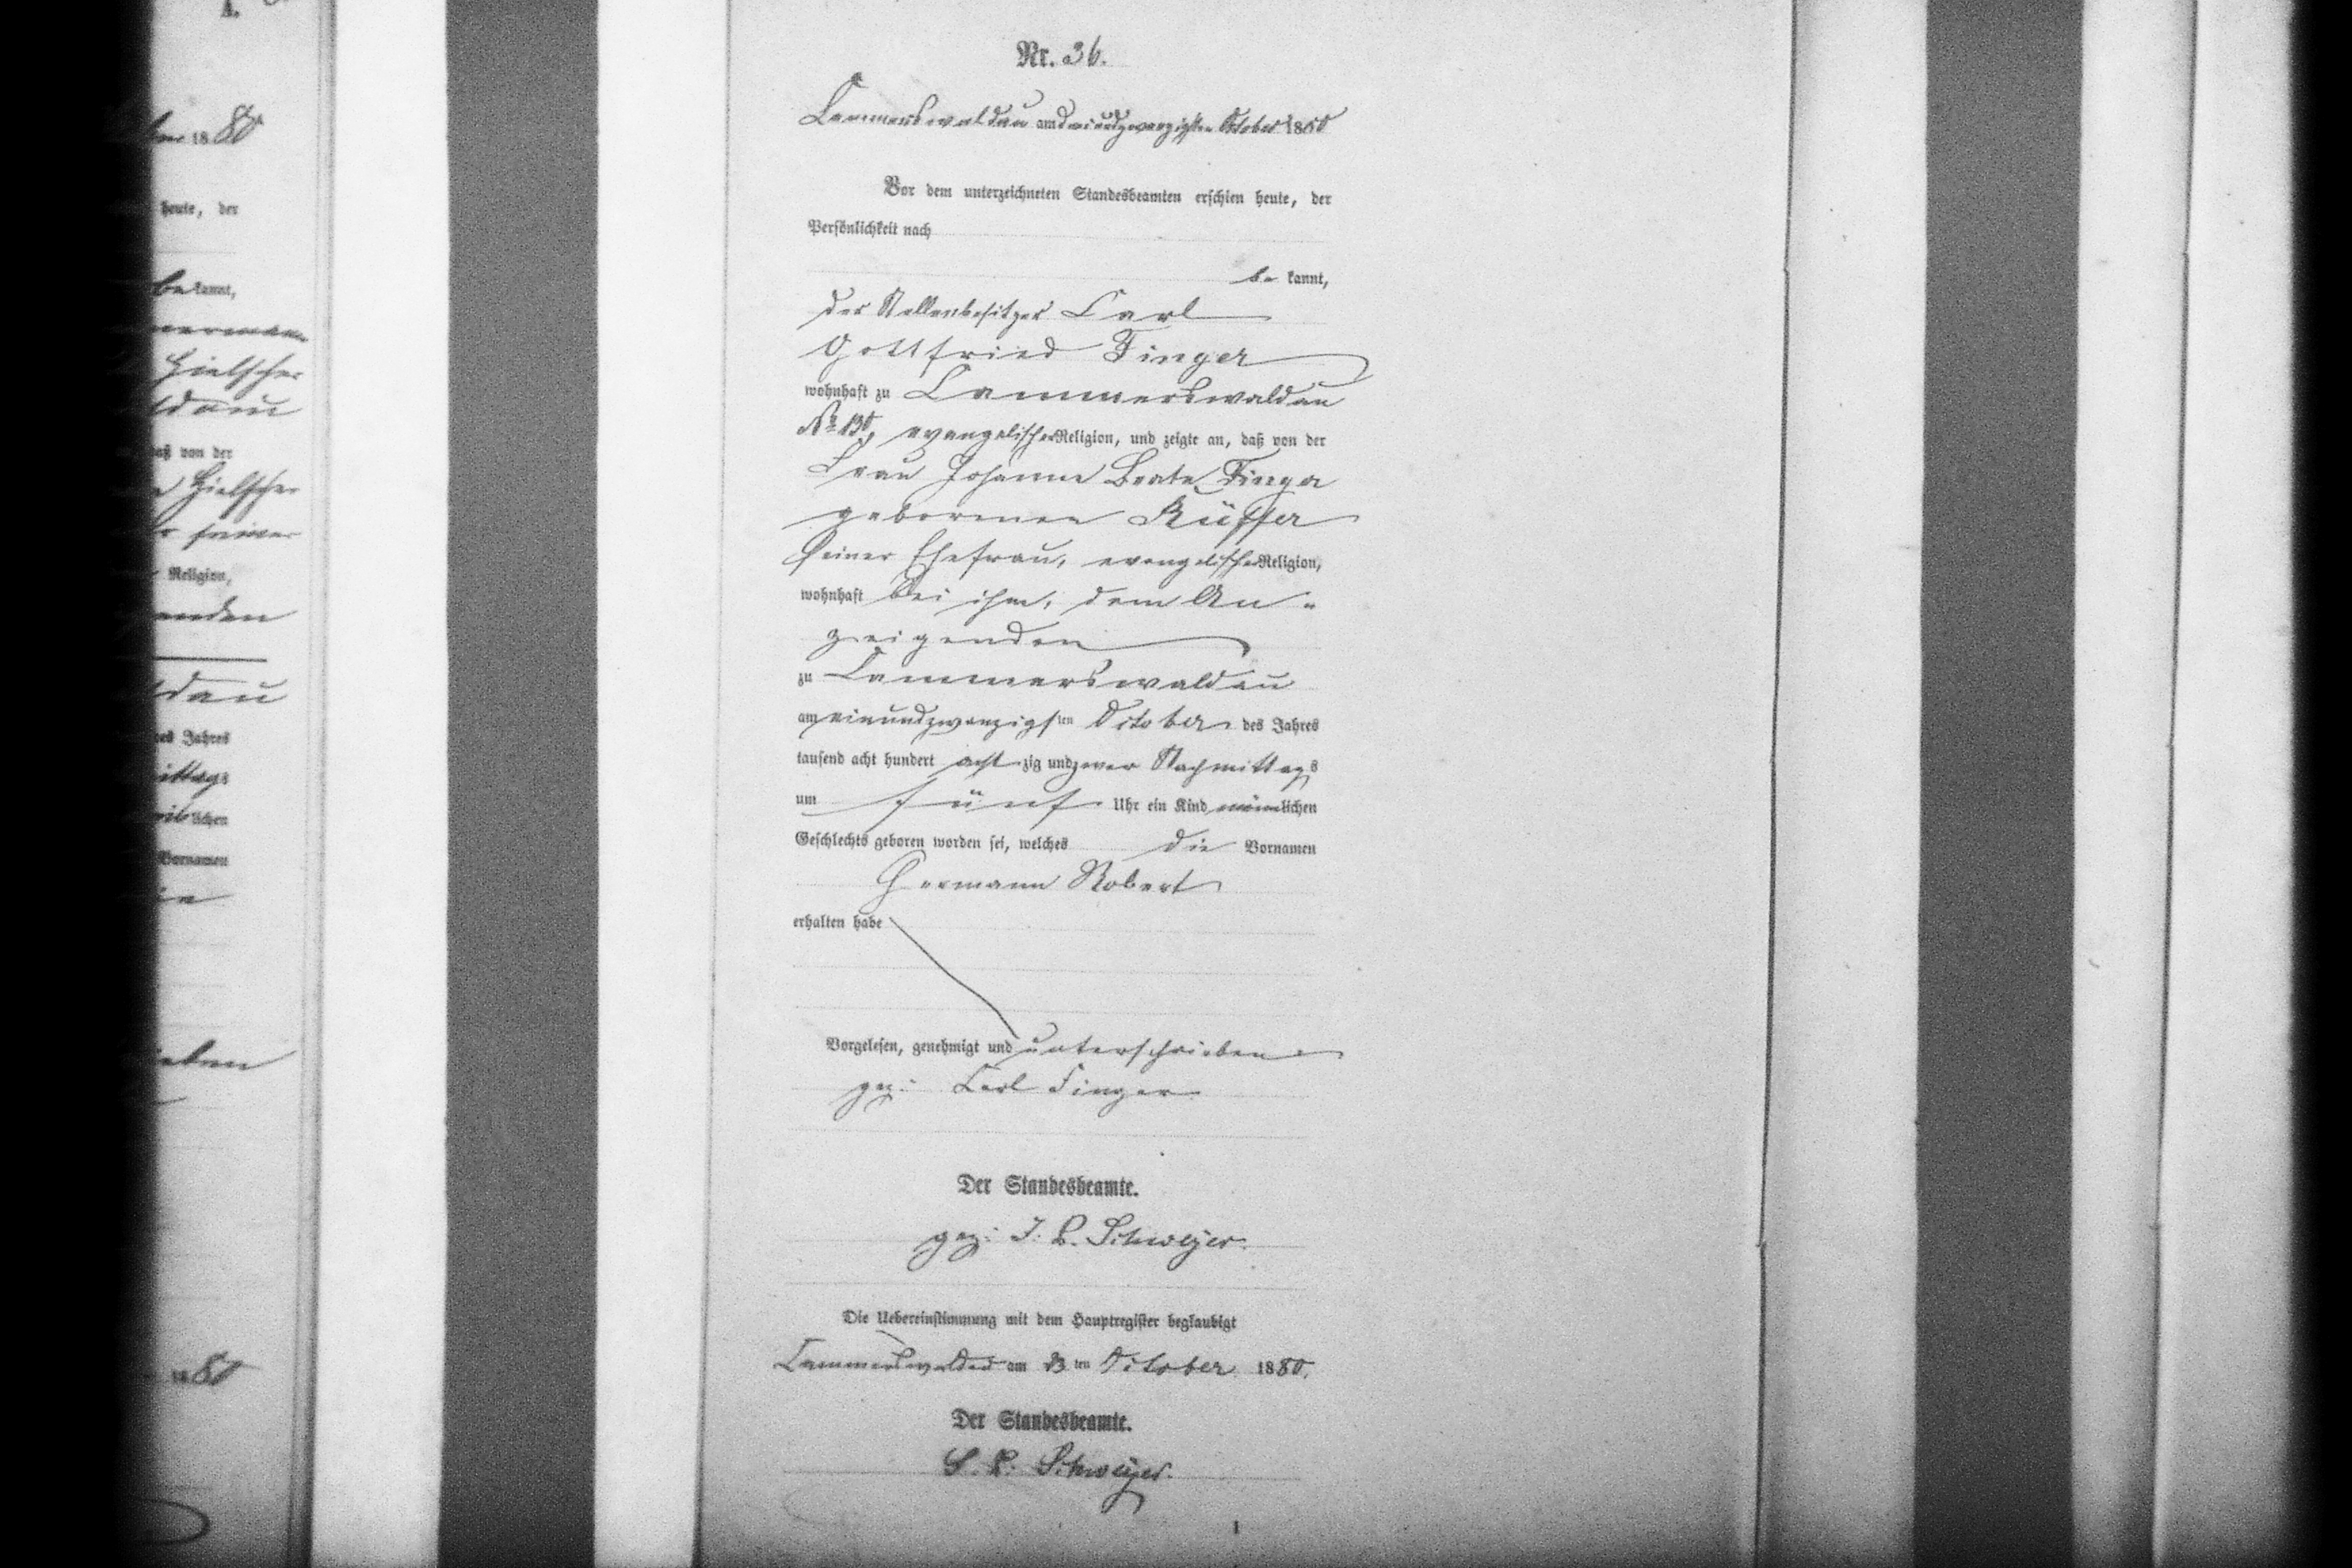 Nr. 36.
Kammerswaldau am dreiundzwanzigsten October 1880
Vor dem unterzeichneten Standesbeamten erschien heute, der
Persönlichkeit nach
be kannt,
der Stellenbesitzer Carl
Gottfried Finger
wohnhaft zu Kammerswaldau
No 130, evangelischer Religion, und zeigte an, daß von der
Frau Johanne Beate Finger
geborenen Küffer
seiner Ehefrau, evangelischer Religion,
wohnhaft bei ihm, dem An-
zeigenden
zu Kammerswaldau
am einundzwanzigsten October des Jahres
tausend acht hundert acht zig und zwar Nachmittags
um fünf Uhr ein Kind männlichen
Geschlechts geboren worden sei, welches die Vornamen
Hermann Robert
erhalten habe
Vorgelesen, genehmigt und unterschrieben
gez: Carl Finger
Der Standesbeamte.
gez: Schweijer.
Die Uebereinstimmung mit dem Hauptregister beglaubigt
Kammerswaldau am 23 ten October 1880.
Der Standesbeamte.
Schweijer.
1
1880
heute, der
bekannt,
Hielscher
daß von der
Hielscher
seiner
Religion,
des Jahres
lichen
Vornamen
80